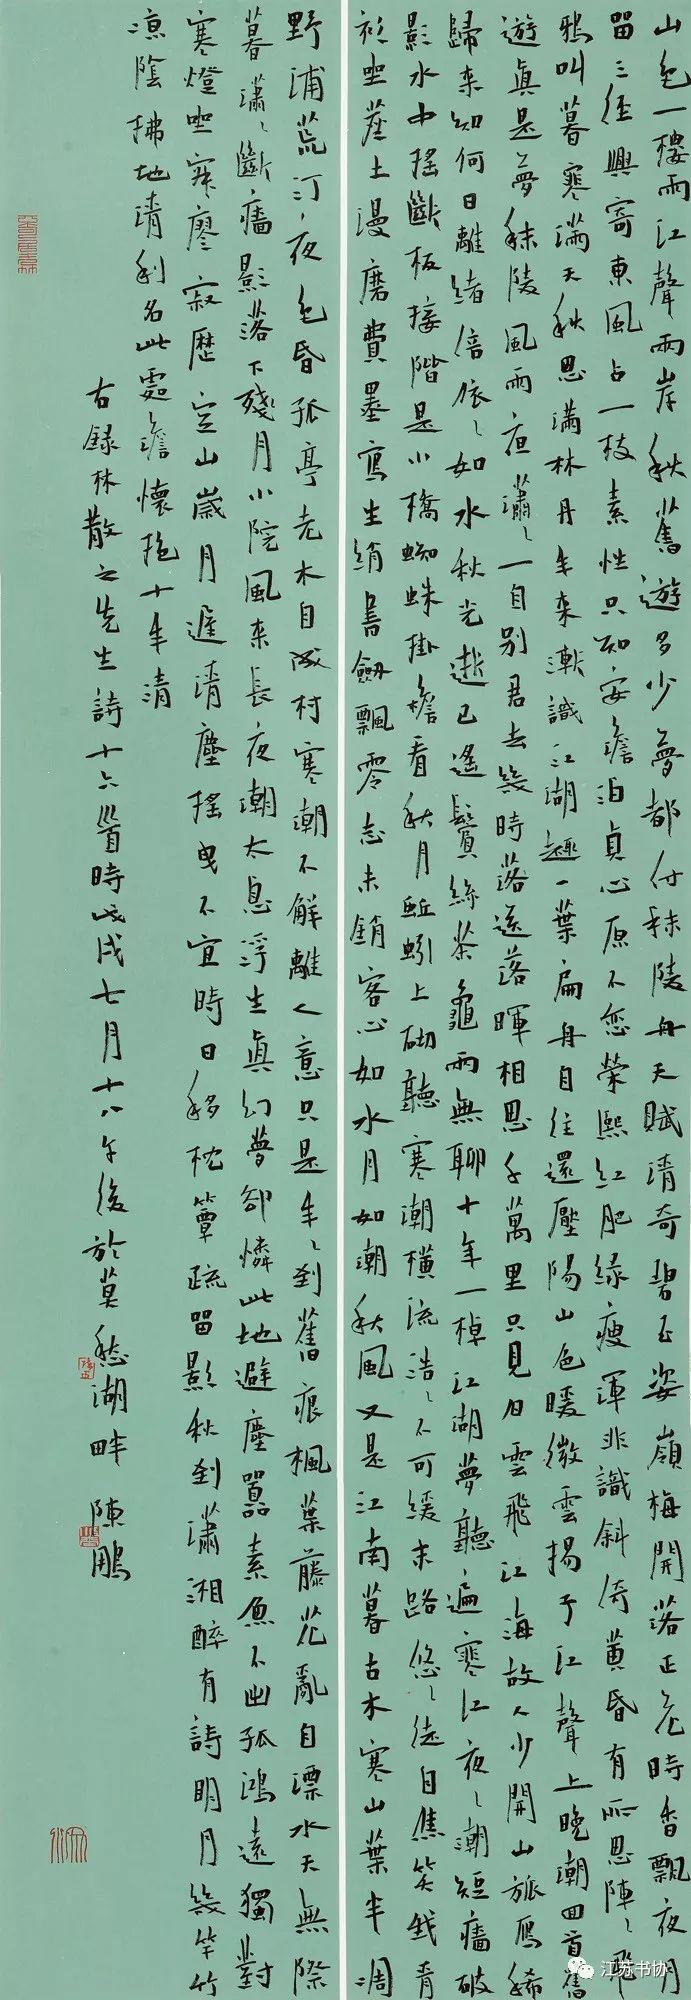 山色一樓雨江聲兩岸秋舊遊多少夢都付秣陵舟天賦清奇碧玉姿嶺梅開落正花時香飄夜月
留三徑興寄東風占一枝素性只知安澹泊貞心原不戀榮熙紅肥綠瘦渾非識斜倚黃昏有所思陣陣飛
鴉叫暮寒滿天秋思滿林丹年來漸識江湖趣一葉扁舟自往還壓陽山色暖微雲揚子江聲上晚潮回首舊
遊真是夢秣陵風雨夜瀟瀟一自別君去幾時落送落暉相思千萬里只見白雲飛江海故人少關山旅雁稀
歸來知何日離緒倍依依如水秋光逝已遙鬢絲茶龜兩無聊十年一棹江湖夢聽遍寒江夜夜潮短牆破
影水中搖斷板接階是小橋蜘蛛掛檐看秋月蚯蚓上砌聽寒潮橫流浩浩不可緩末路悠悠徒自焦笑我青
衫坐塵土漫磨費墨寫生綃書劍飄零志未銷客心如水月如潮秋風又是江南暮古木寒山葉半凋
野浦荒汀夜色昏孤亭老木自成村寒潮不解離人意只是年年到舊痕楓葉藤花亂自漂水天無際
暮瀟瀟斷牆影落下殘月小院風來長夜潮太息浮生真幻夢卻憐此地避塵囂素魚不出孤鴻遠獨對
寒燈坐寂寥寂歷空山歲月遲清塵搖曳不宜時日移枕簟疏留影秋到瀟湘醉有詩明月幾竿竹
涼陰拂地清利名此處澹懷抱十年清
右錄林散之先生詩十六首時戊戌七月十八午後於莫愁湖畔 陳鵬
江苏书协